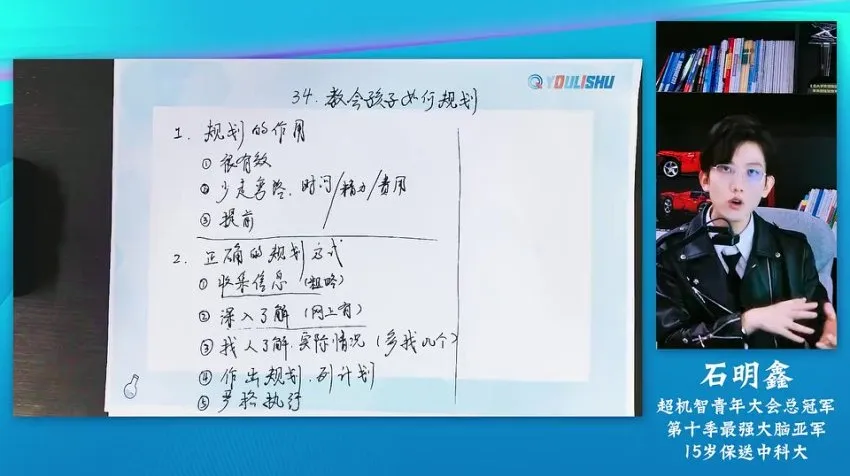 YOULISHU
34. 教会孩子如何规划
1. 规划的作用
① 很有效
② 少走弯路. 时间/精力/费用
③ 提前
2. 正确的规划方式
① 收集信息 (粗略)
② 深入了解 (网上有)
③ 找人了解.实际情况 (多找几个)
④ 作出规划.列计划
⑤ 严格执行
石明鑫
超机智青年大会总冠军
第十季最强大脑亚军
15岁保送中科大